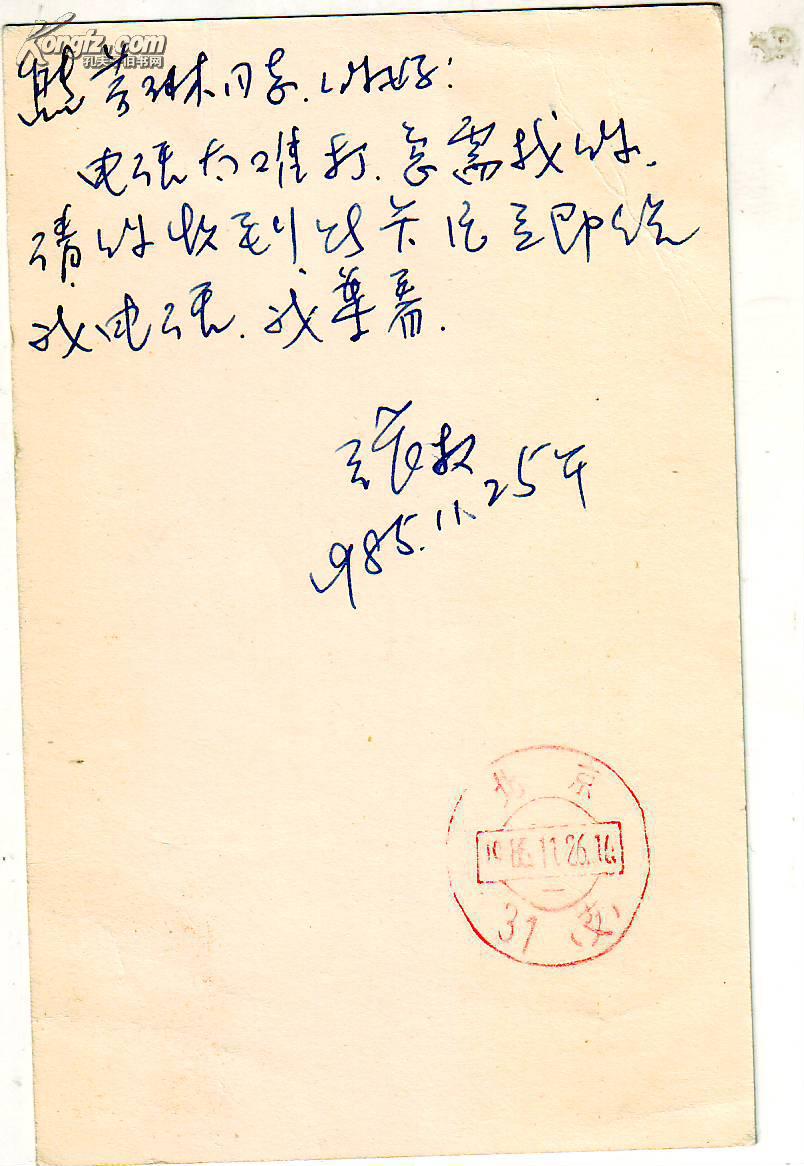 Kongfz.com
孔夫子旧书网
熊芳琳同志、你好:
电话太难打.急需找你.
请你收到此卡后立即给
我电话.我等着.
张
1985.11.25午
北京
1985.11.26.16
31(支)